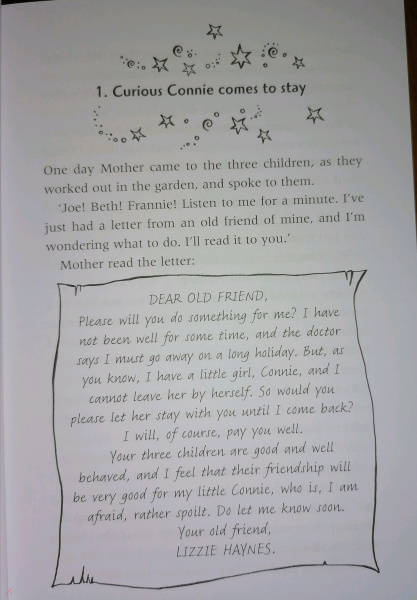 1. Curious Connie comes to stay
One day Mother came to the three children, as they
worked out in the garden, and spoke to them.
‘Joe! Beth! Frannie! Listen to me for a minute. I’ve
just had a letter from an old friend of mine, and I’m
wondering what to do. I’ll read it to you.’
Mother read the letter:
DEAR OLD FRIEND,
Please will you do something for me? I have
not been well for some time, and the doctor
says I must go away on a long holiday. But, as
you know, I have a little girl, Connie, and I
cannot leave her by herself. So would you
please let her stay with you until I come back?
I will, of course, pay you well.
Your three children are good and well
behaved, and I feel that their friendship will
be very good for my little Connie, who is, I am
afraid, rather spoilt. Do let me know soon.
Your old friend,
LIZZIE HAYNES.